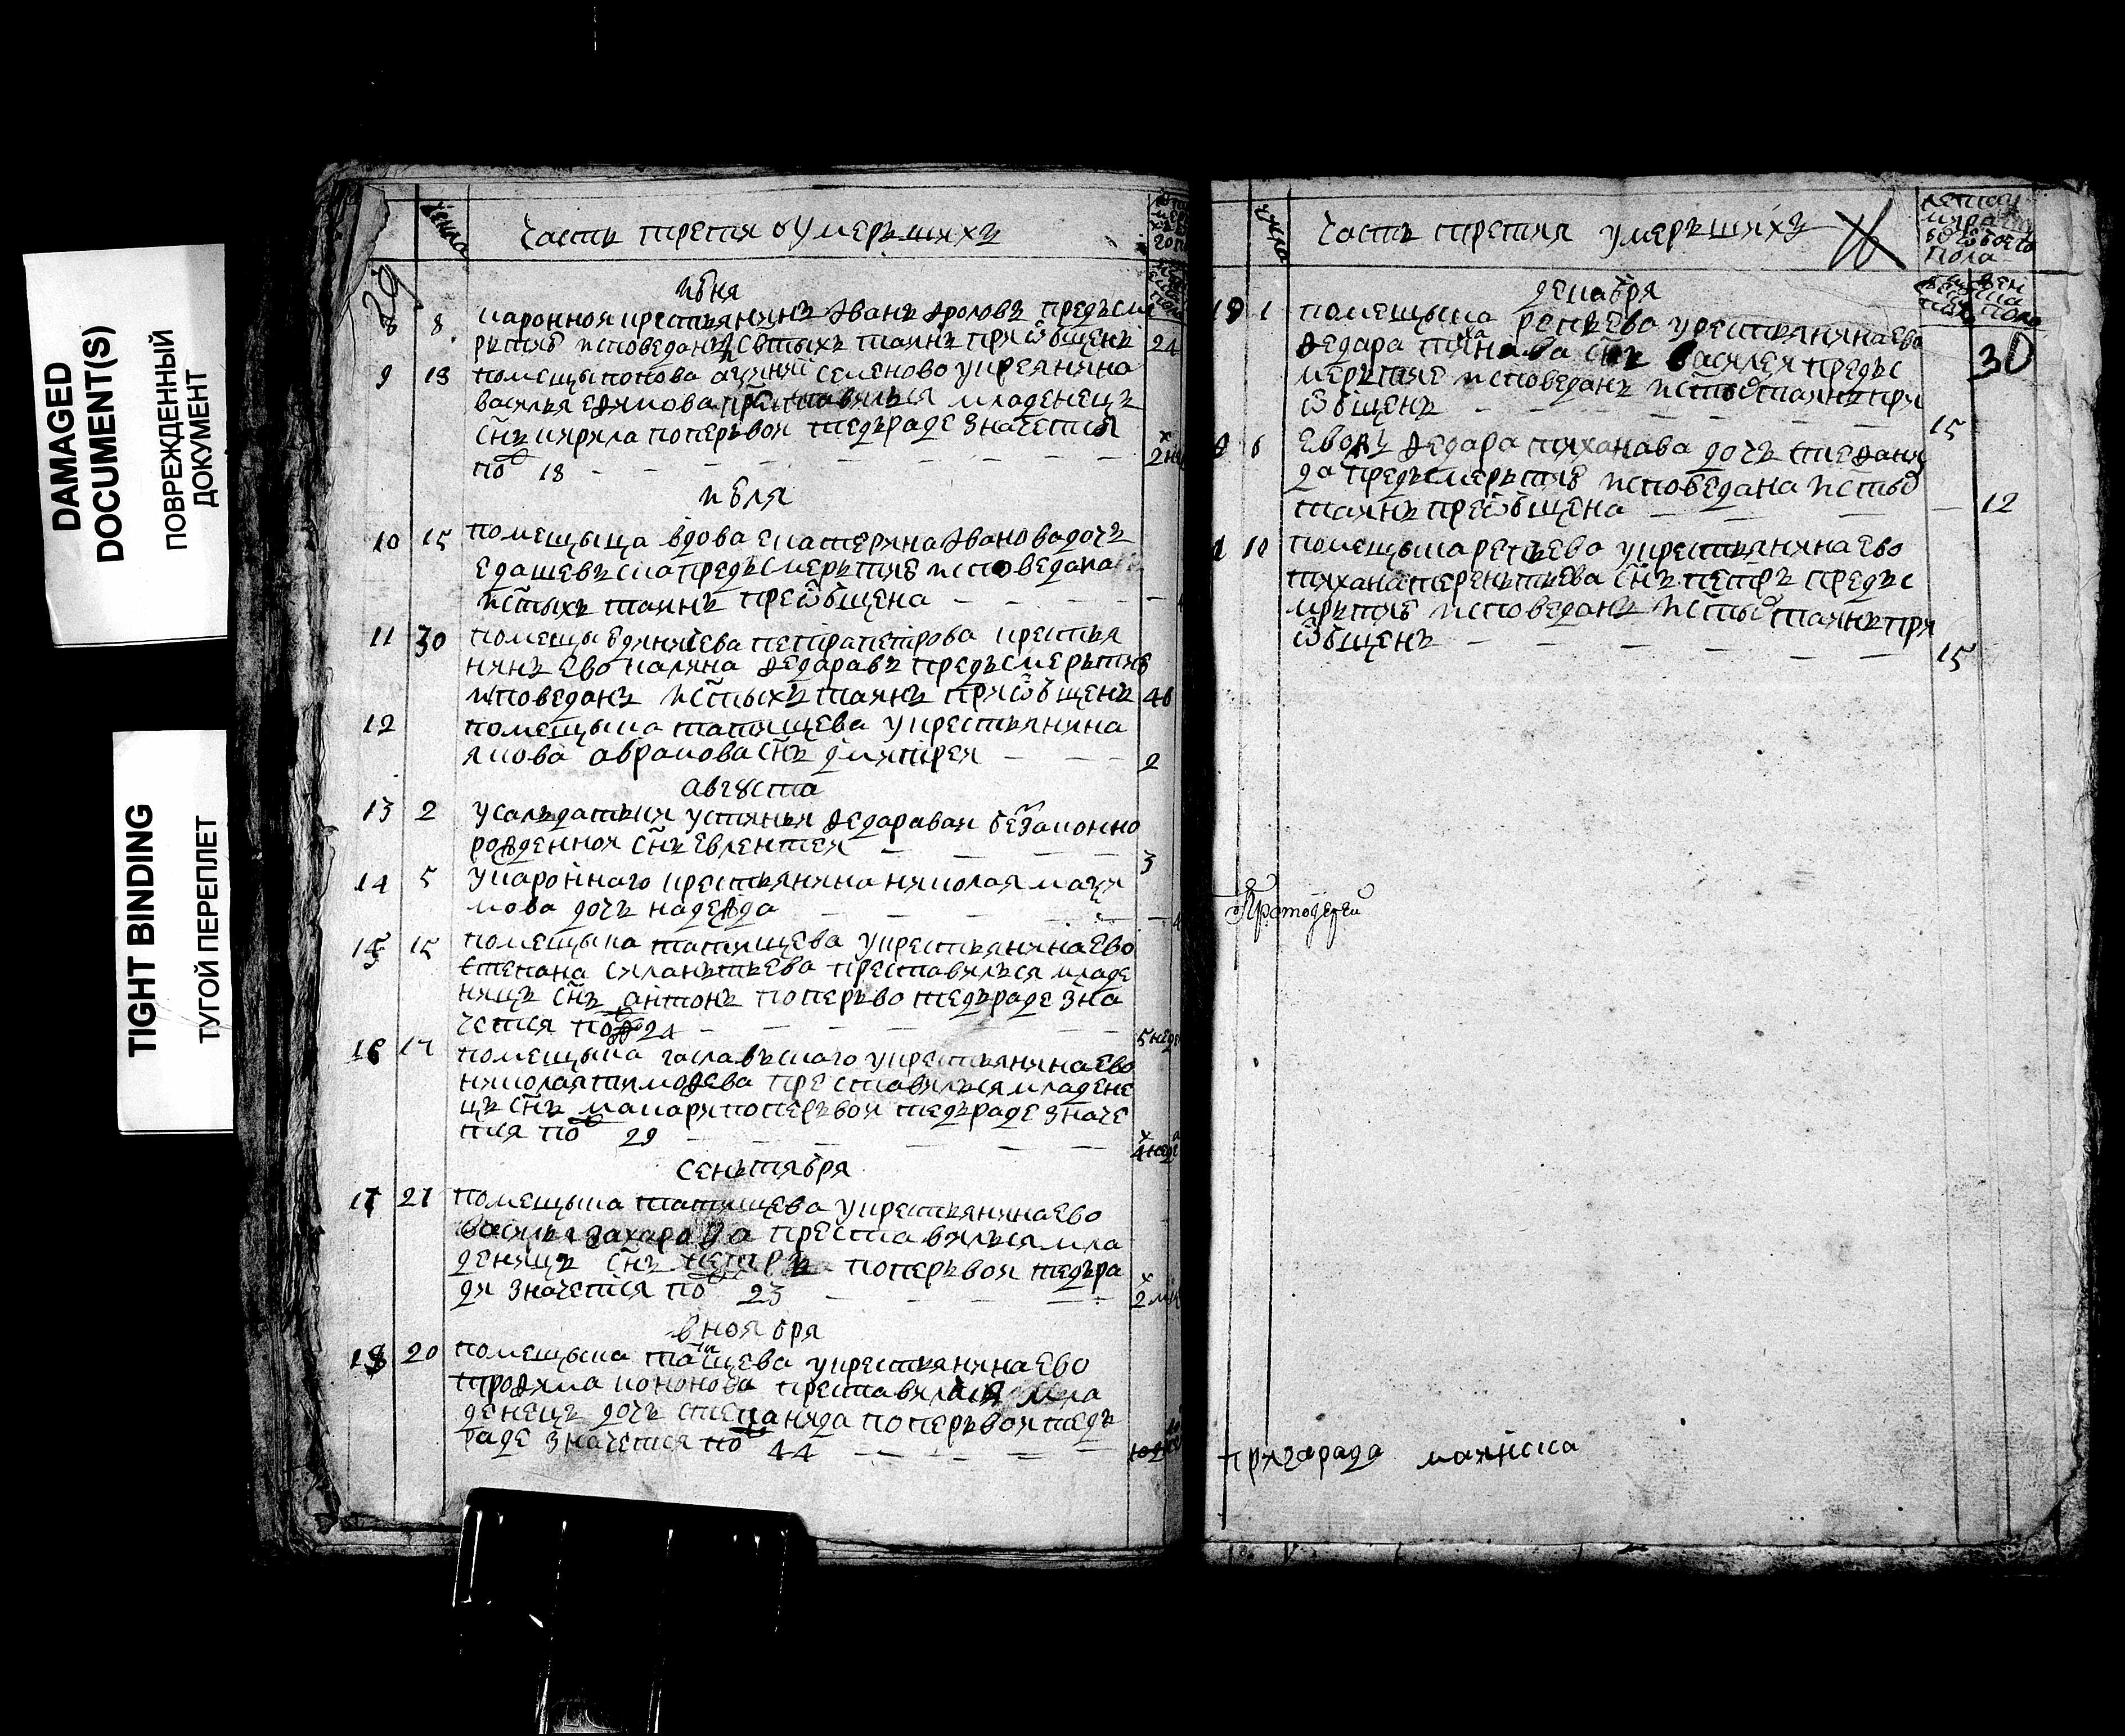 DAMAGED
DOCUMENT(S)
ПОВРЕЖДЕННЫЙ
ДОКУМЕНТ
TIGHT BINDING
ТУГОЙ ПЕРЕПЛЕТ
числа
Часть третия ѡ умерьшихъ
29
июня
8 8 каронной крестьянинъ Иванъ Фроловъ предъсме
ртию исповеданъ и святыхъ таинъ приѡбщенъ 24
9 13 помещыкова семеново у креянина
василья ефимова преставился младенецъ
сн҃ъ кирила поперьвой тедьраде значется
по 18 2
июля
10 15 помещыца вдова екатерина Иванова дочь
едашевъска предъсмерьтию исповедана
и ст҃ыхъ таинъ преѡбщена
11 30 помещы петра петрова крестья
нинъ ево калина федаравъ предъсмерьтию
исповеданъ и ст҃ыхъ таинъ приѡбщенъ 46
12 помещыка татищева у крестьянина
якова абрамова сн҃ъ димитрей 2
августа
13 2 у салъдатъки устиньи федаравай безаконно
рожденной сн҃ъ евлентей 3
14 5 у каронного крестьянина николая макси
мова дочь надежда
15 15 помещыка татищева у крестьянина ево
степана силаньтьева преставилься младе
ницъ сн҃ъ антонъ поперьво тедьраде зна
чется по 24 5 неде
16 17 помещыка гаславъскаго у крестьянина ево
николая тимофева преставилься младене
цъ сн҃ъ макари поперьвои тедьраде значе
тся по 29 4 неде
сеньтября
17 21 помещыка татищева у крестьянина ево
василья захарова преставилься мла
деницъ сн҃ъ петръ поперьвои тедьра
ди значется по 23 2
в ноября
18 20 помещыка татищева у крестьянина ево
трофима кононова преставилася мла
денецъ дочь степанида поперьвои тедъ
раде значется по 44
числа
Часть третия умерьшихъ
летом
мужска
женска
пола
30
декабря
19 1 помещыка репьева у крестьянина ево
федара тиханава сн҃ъ василея предъс
мерьтие исповеданъ и ст҃ы таинъ при
ѡбщенъ 15
6 ево жъ федара тиханава дочь степани
да предъсмерьтию исповедана и ст҃ы
таинъ преѡбщена 12
10 помещыка репьева у крестьянина ево
тихана тереньтьева сн҃ъ петръ предъс
мрьтию исповеданъ и ст҃ы таинъ при
ѡбщенъ 15
Протоиерей
пригарада маинска